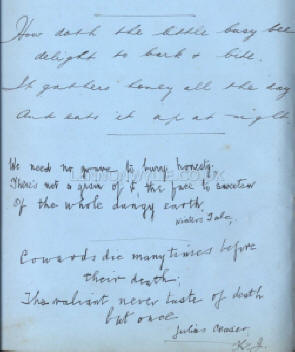 How doth the little busy bee
delight to bark & bite.
It gathers honey all the day
And eats it up at night.
We need no grave to bury honesty.
There's not a grain of it, the face to sweeten
Of the whole dungy earth
Winters Tale,
Cowards die many times before
their death;
The valiant never taste of death
but once
Julius Ceasar,